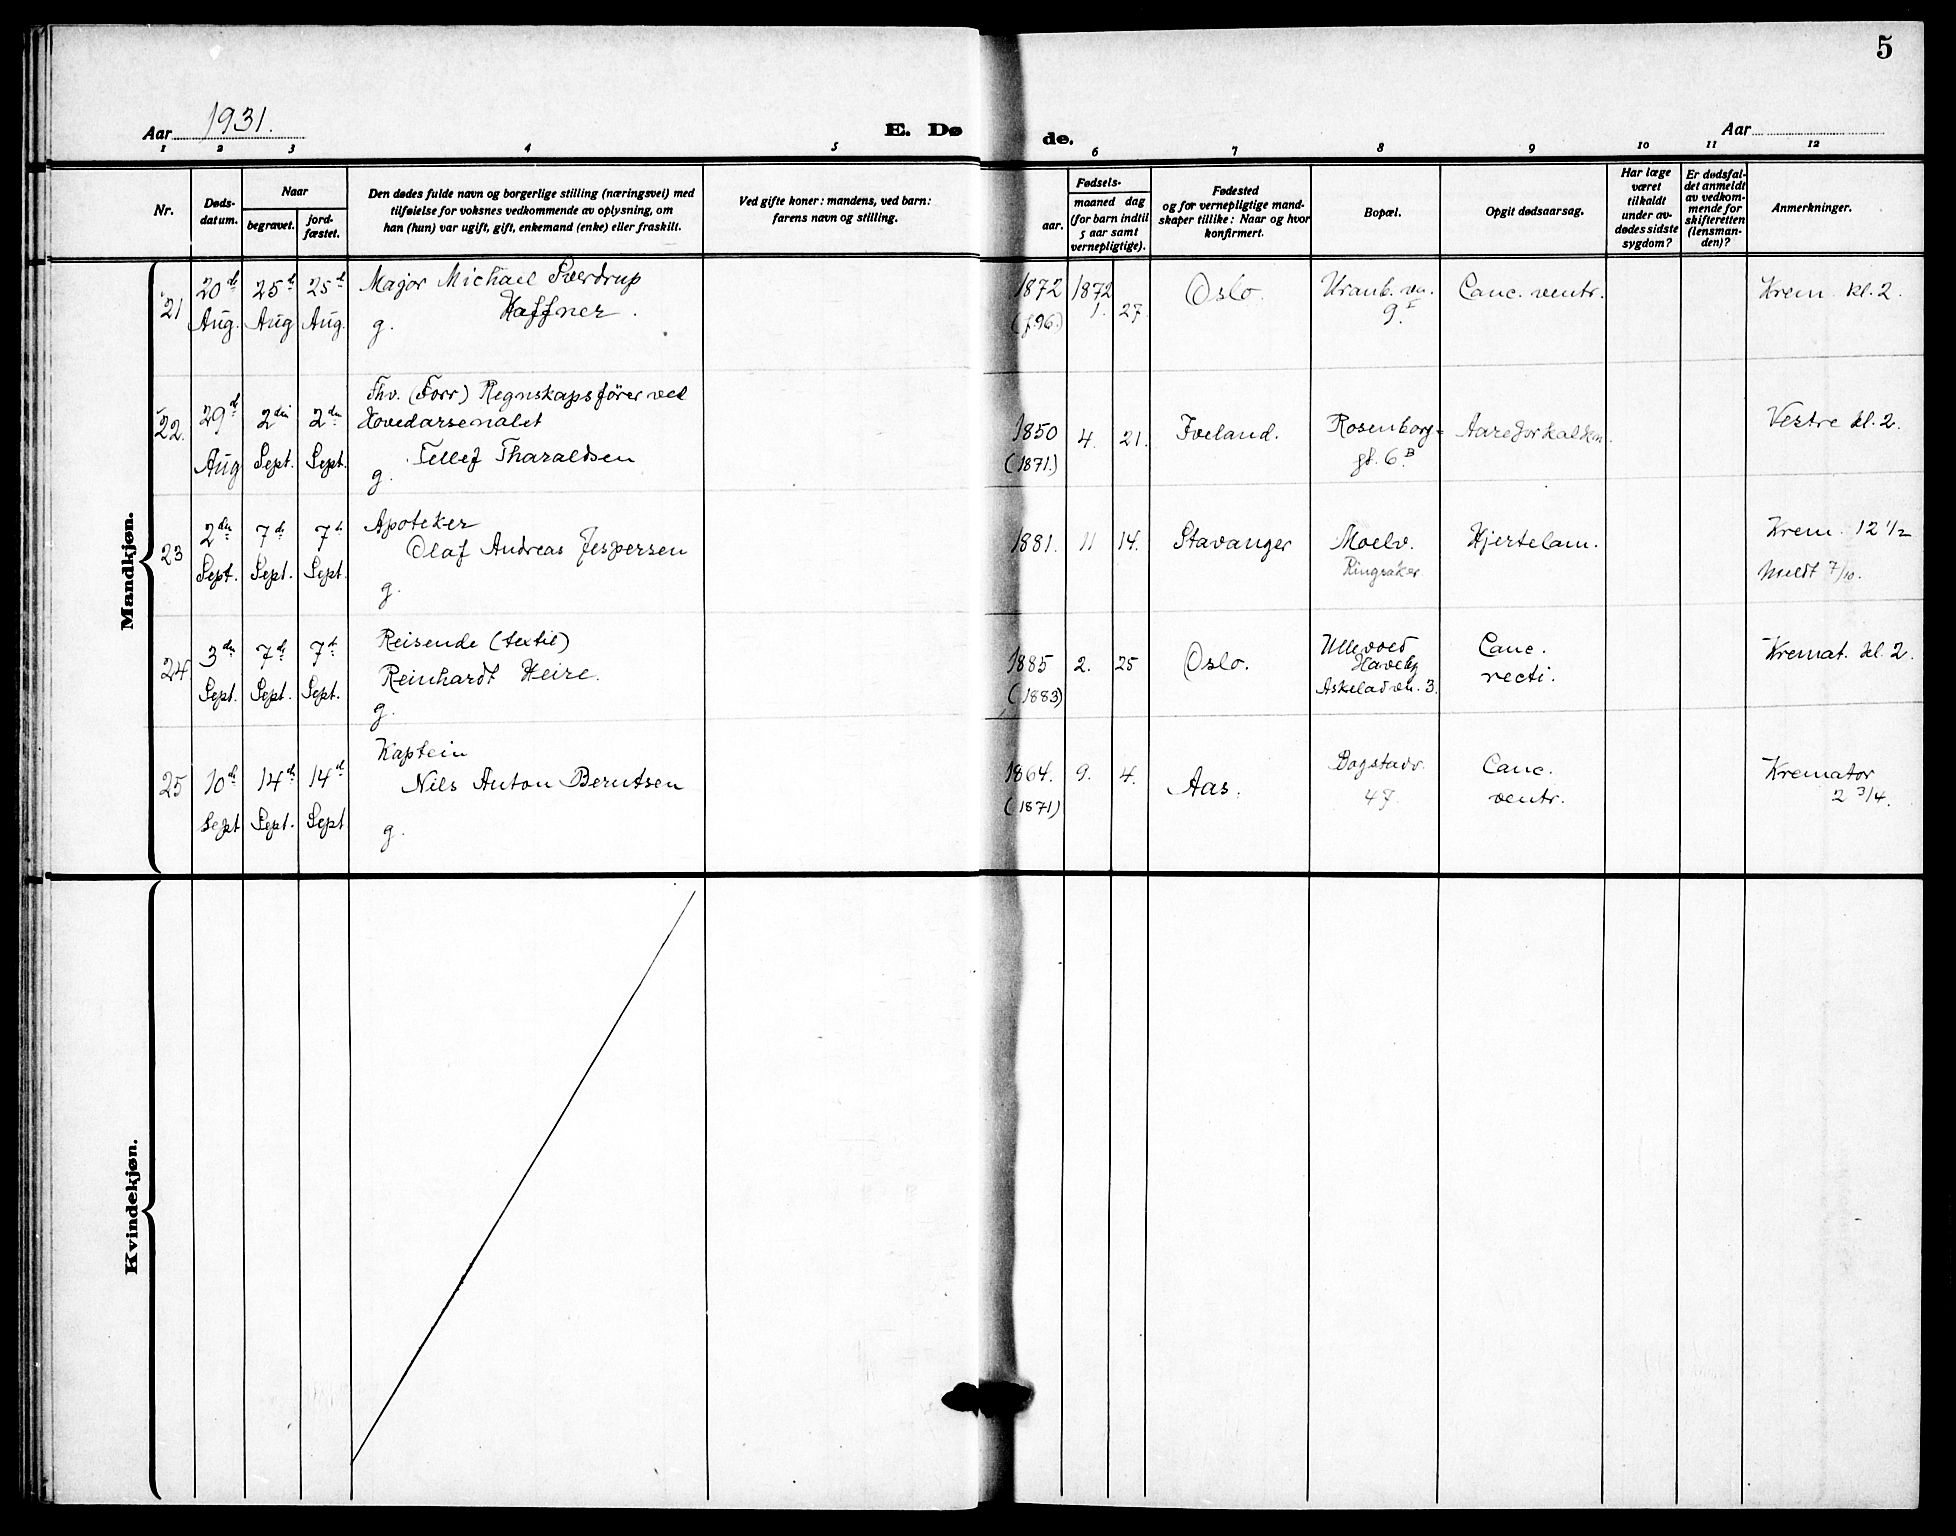 5
Aar 1931.
E. Dø
de.
Aar
1 2 3 4 5 6 7 8 9 10 11 12
Nr.
Døds-
datum.
Naar
begravet.
jord-
fæstet.
Den dødes fulde navn og borgerlige stilling (næringsvei) med
tilføielse for voksnes vedkommende av oplysning, om
han (hun) var ugift, gift, enkemand (enke) eller fraskilt.
Ved gifte koner: mandens, ved barn:
farens navn og stilling.
Fødsels-
aar.
maaned dag
(for barn indtil
5 aar samt
vernepligtige).
Fødested
og for vernepligtige mand-
skaper tillike: Naar og hvor
konfirmert.
Bopæl.
Opgit dødsaarsag.
Har læge
været
tilkaldt
under av-
dødes sidste
sygdom?
Er dødsfal-
det anmeldt
av vedkom-
mende for
skifteretten
(lensman-
den)?
Anmerkninger.
Mandkjøn.
21
20de
Aug.
25de
Aug
25de
Aug.
Major Michael Sverdrup
Haffner.
g.
1872
1872
27.
Oslo.
Uranb. vn.
9I
Canc. ventr.
Krem. kl. 2.
22.
29de
Aug
2den
Sept.
2den
Sept.
Fhv. (Forr) Regnskapsfører ved
Hovedarsenalet
Tellef Tharaldsen
g.
1850
(1871.)
4.
21.
Iveland.
Rosenborg-
gt. 6B
Aareforkalkn.
Vestre kl. 2.
23
2den
Sept.
7de
Sept.
7de
Sept.
Apoteker
Olaf Andreas Jespersen
g.
1881.
11
14.
Stavanger
Moelv.
Ringsaker
Hjertelam.
Krem. 12 1/2
meldt 7/10.
24
3die
Sept.
7de
Sept.
7de
Sept.
Reisende (textil)
Reinhardt Heire.
g.
1885
(1883)
2.
25
Oslo.
Ullevold
Haveby
Askeladvn. 3.
Canc.
recti.
Kremat. kl. 2.
25
10de
Sept
14de
Sept.
14de
Sept
Kaptein
Nils Anton Berntsen
g.
1864.
(1871)
9.
4.
Aas.
Bogstadv.
47
Canc.
ventr.
Kremator
2 3/4.
Kvindekjøn.